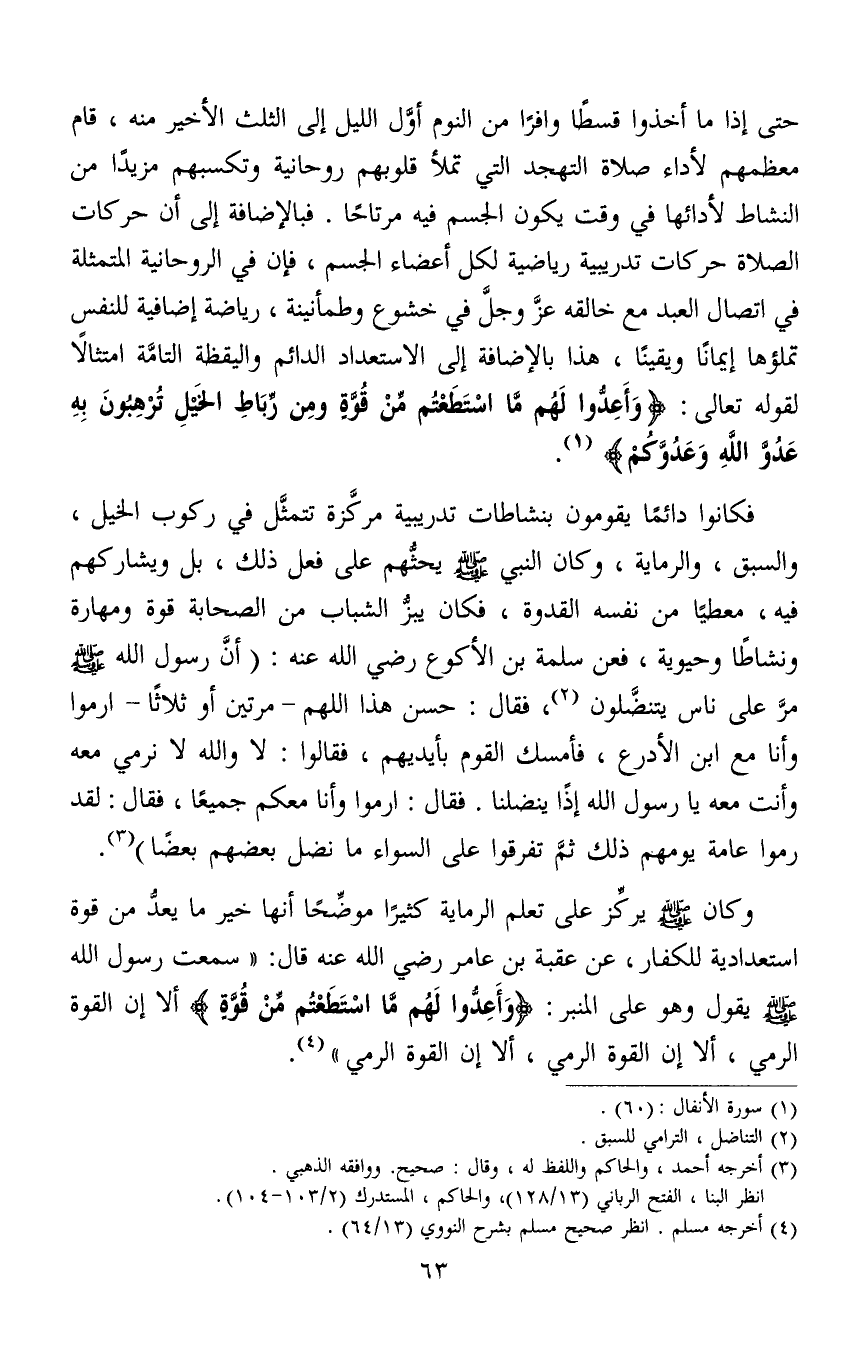 حتى إذا ما أخذوا قسطًا وافرًا من النوم أوَّل الليل إلى الثلث الأخير منه ، قام
معظمهم لأداء صلاة التهجد التي تملأ قلوبهم روحانية وتكسبهم مزيدًا من
النشاط لأدائها في وقت يكون الجسم فيه مرتاحًا . فبالإضافة إلى أن حركات
الصلاة حركات تدريبية رياضية لكل أعضاء الجسم ، فإن في الروحانية المتمثلة
في اتصال العبد مع خالقه عزَّ وجلَّ في خشوع وطمأنينة ، رياضة إضافية للنفس
تملؤها إيمانًا ويقينًا ، هذا بالإضافة إلى الاستعداد الدائم واليقظة التامَّة امتثالًا
لقوله تعالى : ﴿ وَأَعِدُّوا لَهُم مَّا اسْتَطَعْتُم مِّنْ قُوَّةٍ ومِن رِّبَاطِ الخَيْلِ تُرْهِبُونَ بِهِ
عَدُوَّ اللَّهِ وَعَدُوَّكُمْ ﴾ (١).
فكانوا دائمًا يقومون بنشاطات تدريبية مركَّزة تتمثَّل في ركوب الخيل ،
والسبق ، والرماية ، وكان النبي ﷺ يحثُّهم على فعل ذلك ، بل ويشاركهم
فيه ، معطيًا من نفسه القدوة ، فكان يبزُّ الشباب من الصحابة قوة ومهارة
ونشاطًا وحيوية ، فعن سلمة بن الأكوع رضي الله عنه : ( أنَّ رسول الله ﷺ
مرَّ على ناس يتنضَّلون (٢)، فقال : حسن هذا اللهم – مرتين أو ثلاثًا – ارموا
وأنا مع ابن الأدرع ، فأمسك القوم بأيديهم ، فقالوا : لا والله لا نرمي معه
وأنت معه يا رسول الله إذًا ينضلنا . فقال : ارموا وأنا معكم جميعًا ، فقال : لقد
رموا عامة يومهم ذلك ثمَّ تفرقوا على السواء ما نضل بعضهم بعضًا )(٣).
وكان ﷺ يركِّز على تعلم الرماية كثيرًا موضِّحًا أنها خير ما يعدُّ من قوة
استعدادية للكفار ، عن عقبة بن عامر رضي الله عنه قال: « سمعت رسول الله
ﷺ يقول وهو على المنبر : ﴿وَأَعِدُّوا لَهُم مَّا اسْتَطَعْتُم مِّنْ قُوَّةٍ ﴾ ألا إن القوة
الرمي ، ألا إن القوة الرمي ، ألا إن القوة الرمي » (٤).
(١) سورة الأنفال : (٦٠) .
(٢) التناضل ، الترامي للسبق .
(٣) أخرجه أحمد ، والحاكم واللفظ له ، وقال : صحيح. ووافقه الذهبي .
انظر البنا ، الفتح الرباني (١٢٨/١٣)، والحاكم ، المستدرك (١٠٣/٢-١٠٤) .
(٤) أخرجه مسلم . انظر صحيح مسلم بشرح النووي (٦٤/١٣) .
٦٣